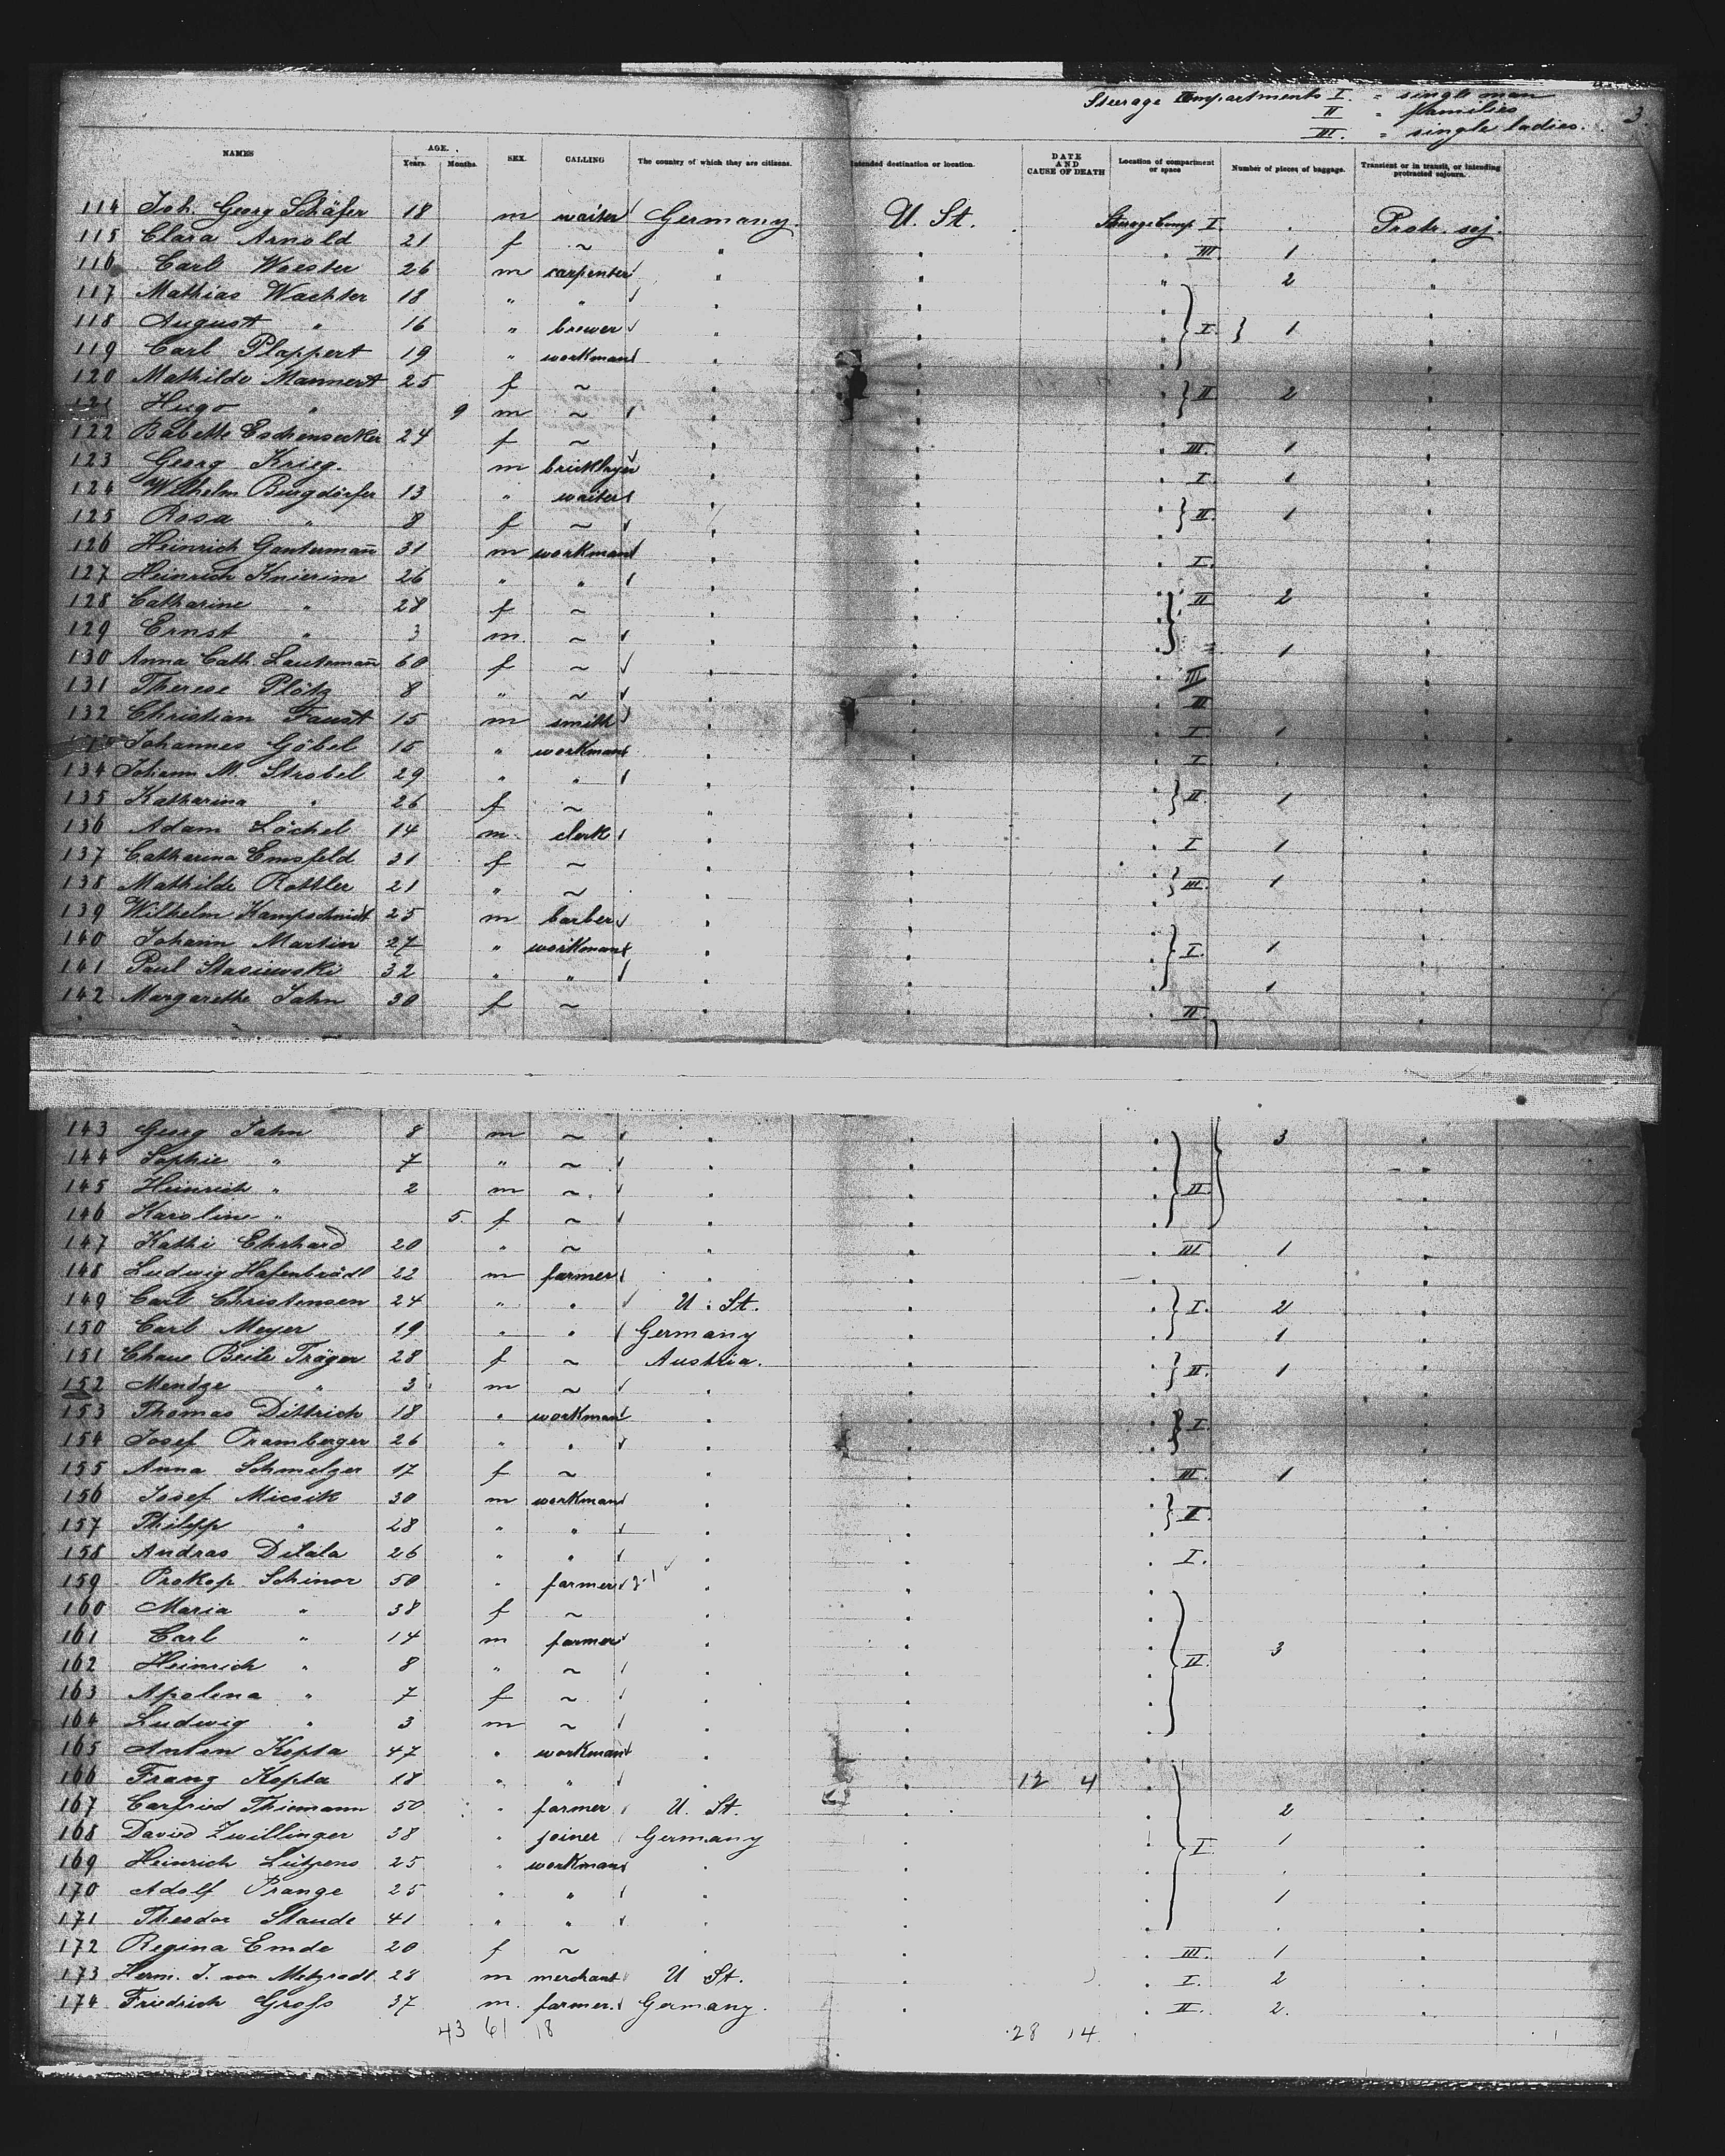 Steerage Compartments I. = single man
II " families
III. = single ladies. 3.
NAMES AGE. Years. Months. SEX. CALLING The country of which they are citizens. Intended destination or location. DATE AND CAUSE OF DEATH Location of compartment or space Number of pieces of baggage. Transient or in transit, or intending protracted sojourn.
114 Joh. Georg Schäfer 18 m waiter Germany. U. St. Steerage Comp I. Protr. soj.
115 Clara Arnold 21 f ~ " " " III. 1 "
116 Carl Woester 26 m carpenter " " " 2 "
117 Mathias Wachter 18 " " " " " "
118 August " 16 " brewer " " " I. 1 "
119 Carl Plappert 19 " workman " " " "
120 Mathilde Mannert 25 f ~ " " " II 2 "
121 Hugo " 9 m ~ " " " "
122 Babette 24 f ~ " " " III. 1 "
123 Georg Krieg. m bricklayer " " " I. 1 "
124 Wilhelm Burgdörfer 13 " waiter " " " II. 1 "
125 Rosa " 8 f ~ " " " "
126 Heinrich Gantermañ 31 m workman " " " I. "
127 Heinrich Knierim 26 " " " " " "
128 Catharine " 28 f ~ " " " II 2 "
129 Ernst " 3 m. ~ " " " "
130 Anna Cath. Lautemañ 60 f ~ " " " III 1 "
131 Therese Plötz 8 " ~ " " " III "
132 Christian Faust 15 m smith " " " I. 1 "
Johannes Göbel 15 " workman " " " I "
134 Johann M. Strobel 29 " " " " " "
135 Katharina " 26 f ~ " " " II. 1 "
136 Adam Löchel 14 m. clerk " " " I 1 "
137 Catharina Emsfeld 31 f ~ " " " "
138 Mathilde Rottler 21 " ~ " " " III. 1 "
139 Wilhelm Kampschmidt 25 m barber " " " "
140 Johann Martin 27 " workman " " " I. 1 "
141 Paul Stasiewski 32 " " " " " 1 "
142 Margarethe Jahn 30 f ~ " " " II. "
143 Georg Jahn 8 m ~ " " " 3 "
144 Sophie " 7 " ~ " " " "
145 Heinrich " 2 m ~ " " " II. "
146 Karoline " 5. f ~ " " " "
147 Kathi Ehrhard 20 " ~ " " " III 1 "
148 Ludwig Hafenbrädl 22 m farmer " " " "
149 Carl Christensen 24 " " U. St. " " I. 2 "
150 Carl Meyer 19 " " Germany " " 1 "
151 Chane Beile Träger 28 f ~ Austria. " " II. 1 "
152 Mendze " 3 m ~ " " " "
153 Thomas Dittrich 18 " workman " " " I. "
154 Josef Pramberger 26 " " " " " "
155 Anna Schmelzer 17 f ~ " " " III. 1 "
156 Josef Micsik 30 m workman " " " II. "
157 Philipp " 28 " " " " " "
158 Andras Dilala 26 " " " " " I. "
159 Prokop Schinor 50 " farmer " " " "
160 Maria " 38 f ~ " " " "
161 Carl " 14 m farmer " " " 3 "
162 Heinrich " 8 " ~ " " " II. "
163 Apolena " 7 f ~ " " " "
164 Ludwig " 3 m ~ " " " "
165 Anton Kopta 47 " workman " " " "
166 Franz Kopta 18 " " " " 12 4 " "
167 Carfried Thiemann 50 " farmer U. St. " " 2 "
168 David Zwillinger 38 " joiner Germany " " I. 1 "
169 Heinrich Lütjens 25 " workman " " " "
170 Adolf Prange 25 " " " " " 1 "
171 Theodor Staude 41 " " " " " "
172 Regina Emde 20 f ~ " " " III. 1 "
173 Herm. J. von Metzradt 28 m merchant U St. " " I. 2 "
174 Friedrich Groß 37 m. farmer. Germany. " " II. 2. "
43 61 18 28 14